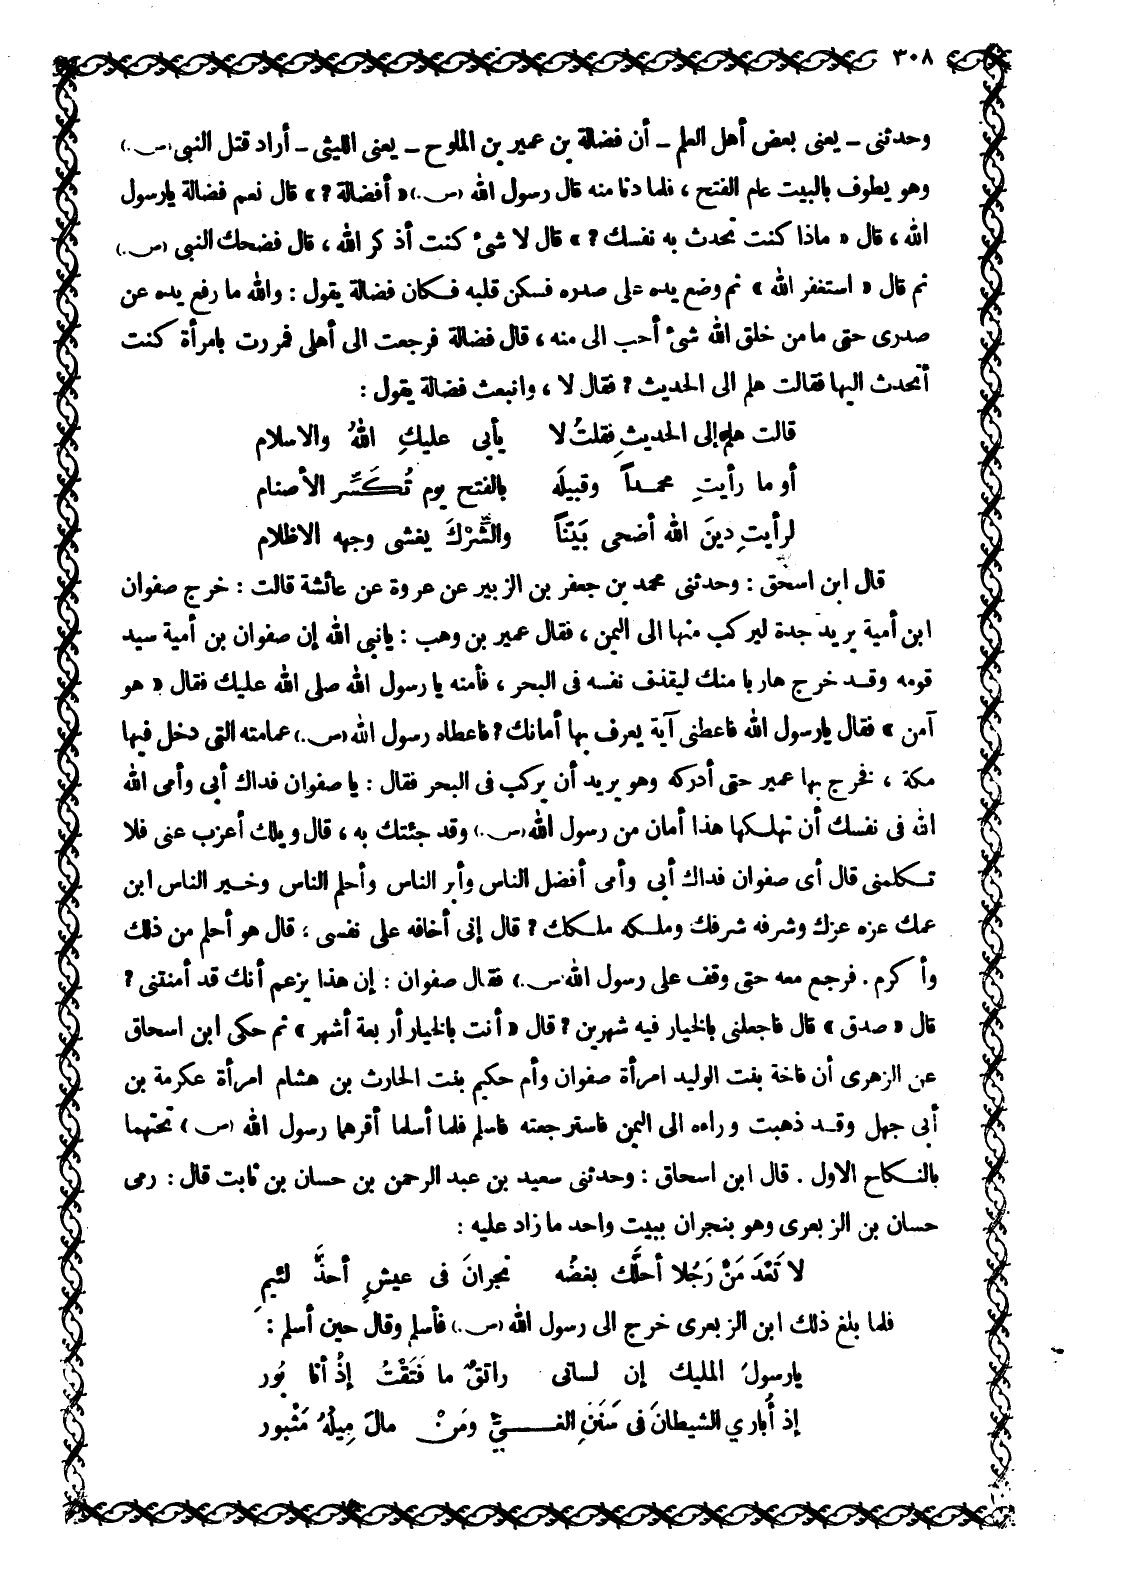 ٣٠٨
وحدثنى ـ يعنى بعض أهل العلم ـ أن فضالة بن عمير بن الملوح ـ يعنى الليثى ـ أراد قتل النبى (س.)
وهو يطوف بالبيت عام الفتح ، فلما دنا منه قال رسول الله (س.) « أفضالة ? » قال نعم فضالة يارسول
الله ، قال « ماذا كنت تحدث به نفسك ? » قال لا شئ كنت أذكر الله ، قال فضحك النبى (س.)
ثم قال « استغفر الله » ثم وضع يده على صدره فسكن قلبه فكان فضالة يقول : والله ما رفع يده عن
صدرى حتى ما من خلق الله شئ أحب الى منه ، قال فضالة فرجعت الى أهلى فمررت بامرأة كنت
أتحدث اليها فقالت هلم الى الحديث ? فقال لا ، وانبعث فضالة يقول :
قالت هلم إلى الحديثِ فقلتُ لا يأبى عليكِ اللهُ والاسلام
أو ما رأيتِ محمداً وقبيلَه بالفتح يوم تُكَسَّر الأصنام
لرأيتِ دينَ الله أضحى بَيّناً والشِّرْكَ يغشى وجهه الاظلام
قال ابن اسحق : وحدثنى محمد بن جعفر بن الزبير عن عروة عن عائشة قالت : خرج صفوان
ابن أمية يريد جدة ليركب منها الى اليمن ، فقال عمير بن وهب : يانبى الله إن صفوان بن أمية سيد
قومه وقد خرج هاربا منك ليقذف نفسه فى البحر ، فأمنه يا رسول الله صلى الله عليك فقال « هو
آمن » فقال يارسول الله فاعطنى آية يعرف بها أمانك ? فاعطاه رسول الله (س.) عمامته التى دخل فيها
مكة ، فخرج بها عمير حتى أدركه وهو يريد أن يركب فى البحر فقال : يا صفوان فداك أبى وأمى الله
الله فى نفسك أن تهلكها هذا أمان من رسول الله (س.) وقد جئتك به ، قال ويلك أعزب عنى فلا
تكلمنى قال أى صفوان فداك أبى وأمى أفضل الناس وأبر الناس وأحلم الناس وخير الناس ابن
عمك عزه عزك وشرفه شرفك وملكه ملكك ? قال إنى أخافه على نفسى ، قال هو أحلم من ذلك
وأكرم . فرجع معه حتى وقف على رسول الله (س.) فقال صفوان : إن هذا يزعم أنك قد أمنتنى ?
قال « صدق » قال فاجعلنى بالخيار فيه شهرين ? قال « أنت بالخيار أربعة أشهر » ثم حكى ابن اسحاق
عن الزهرى أن فاختة بنت الوليد امرأة صفوان وأم حكيم بنت الحارث بن هشام امرأة عكرمة بن
أبى جهل وقد ذهبت وراءه الى اليمن فاسترجعته فاسلم فلما أسلما أقرهما رسول الله (س) تحتهما
بالنكاح الاول . قال ابن اسحاق : وحدثنى سعيد بن عبد الرحمن بن حسان بن ثابت قال : رمى
حسان بن الزبعرى وهو بنجران ببيت واحد ما زاد عليه :
لا تَعْدَ مَنْ رَجُلا أحلَّك بغضُه نجرانَ فى عيشٍ أحذَّ لئيمِ
فلما بلغ ذلك ابن الزبعرى خرج الى رسول الله (س.) فأسلم وقال حين أسلم :
يارسولَ المليك إن لسانى راتقٌ ما فَتَقْتُ إذْ أنا بُور
إذ أُباري الشيطانَ فى سَنَنِ الغــيِّ ومَنْ مالَ مِيلَهُ مَثْبور